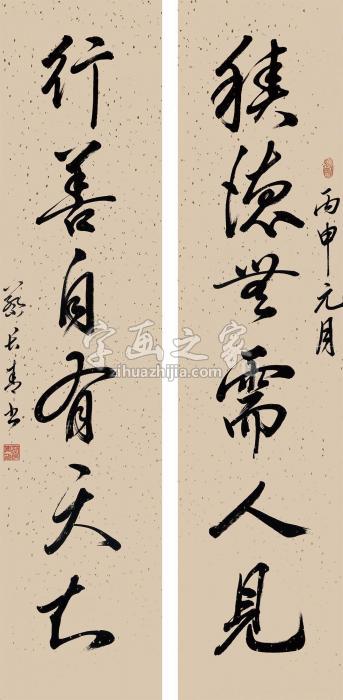 積德無需人見
丙申元月
行善自有天知
蔡长青书
字画之家
zihuazhijia.com